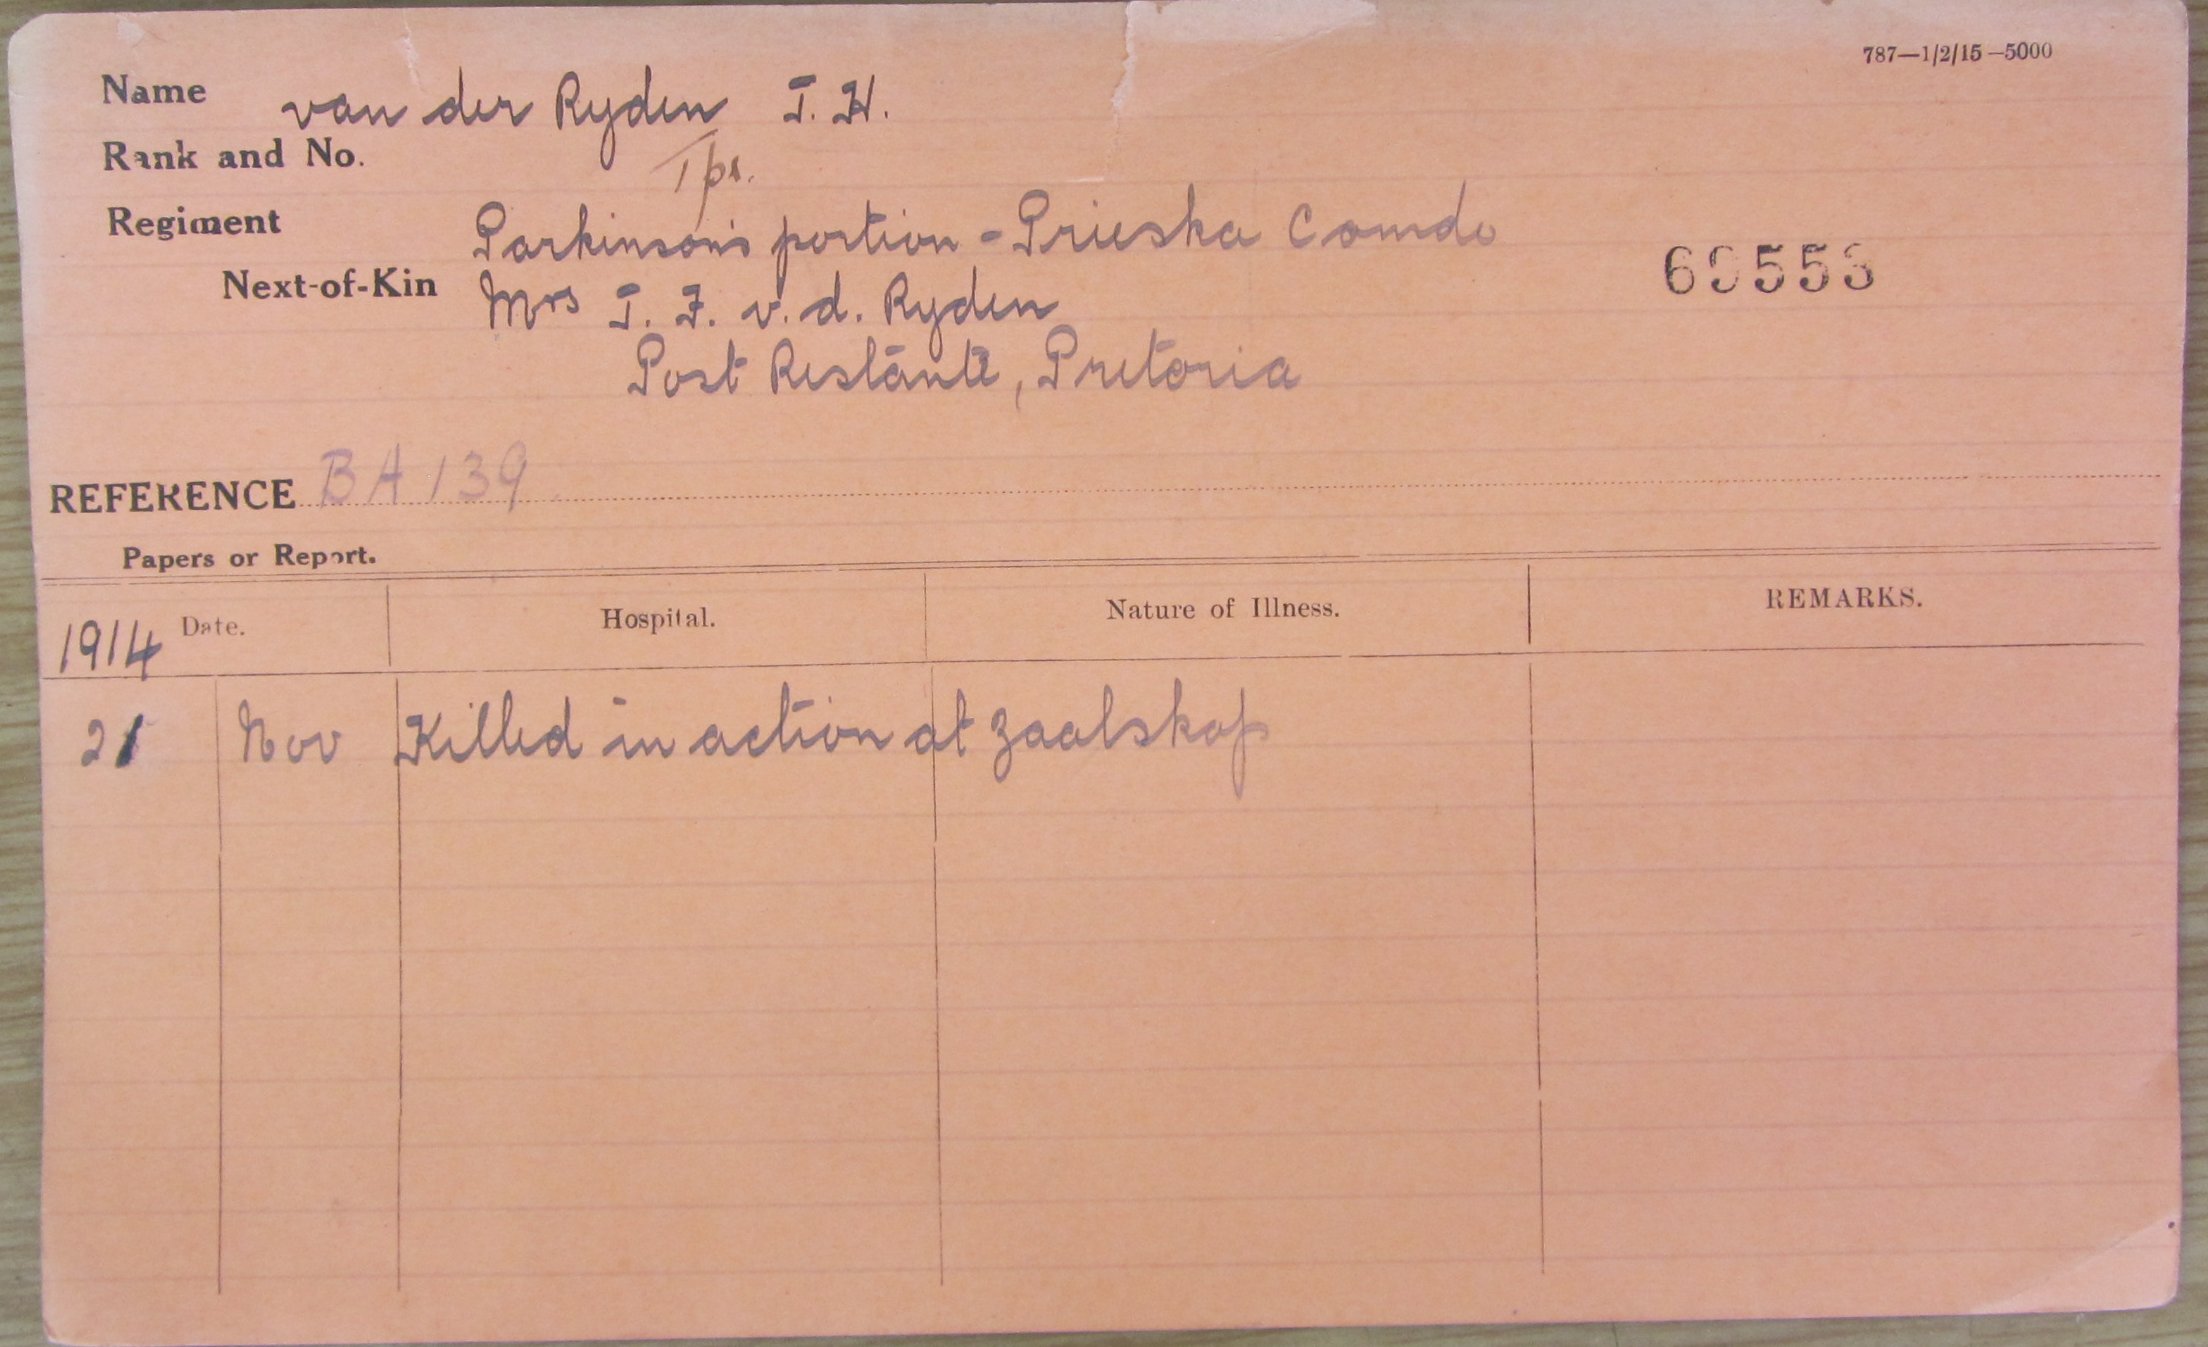 787—1/2/15—5000
Name van der Ryden T. H.
Rank and No. Tpr.
Regiment Parkinson's portion - Prieska Comdo
Next-of-Kin Mrs T. F. v. d. Ryden
Post Restante, Pretoria
REFERENCE BA 139
Papers or Report.
1914 Date. Hospital. Nature of Illness. REMARKS.
21 Nov Killed in action at Zaalskop